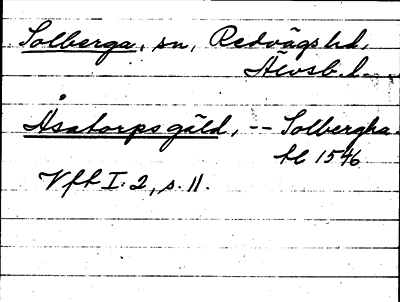 Solberga, sn, Redvägs hd,
Älvsb. l.
Åsatorps gäld, -- Solbergha.
hl 1546
Vfh I: 2, s. 11.